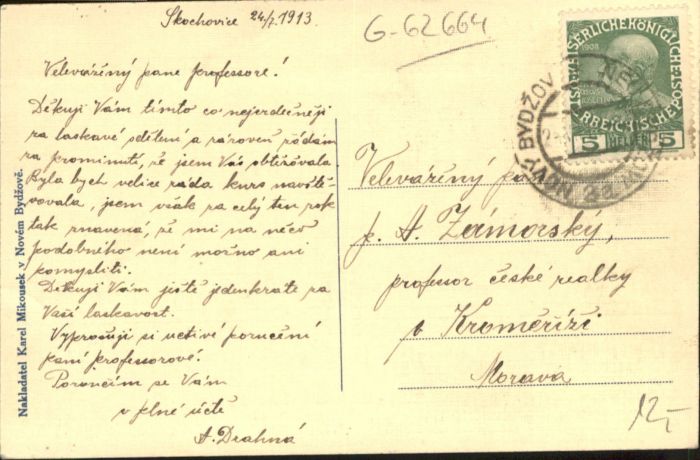 Skochovice 24/7. 1913
G-62664
Velevážený pane professore!
Děkuji Vám tímto co nejerdečněji
za laskavé sdělení a zároveň žádám
za prominutí, že jsem Vás obtěžovala.
Byla bych velice ráda kurs navště-
vovala, jsem však za celý ten rok
tak znavená, že mi na něco
podobného není možno ani
pomysliti.
Děkuji Vám ještě jedenkráte za
Vaší laskavost.
Vyprošuji si uctivé poručení
paní professorové.
Poroučím se Vám
v plné úctě
A. Drahná
Nakladatel Karel Mikousek v Novém Bydžově.
1908
5 HELLER 5
NOVÝ BYDŽOV
Velevážený
p. A. Zámorský,
professor české realky
v Kroměříži
Morava
12,-